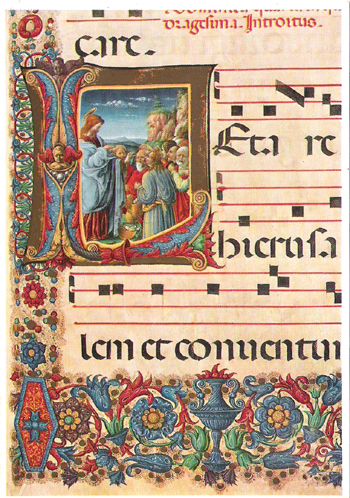 dragesima. Introitus.
care.
LEta re
hierusa
lem et conuentu